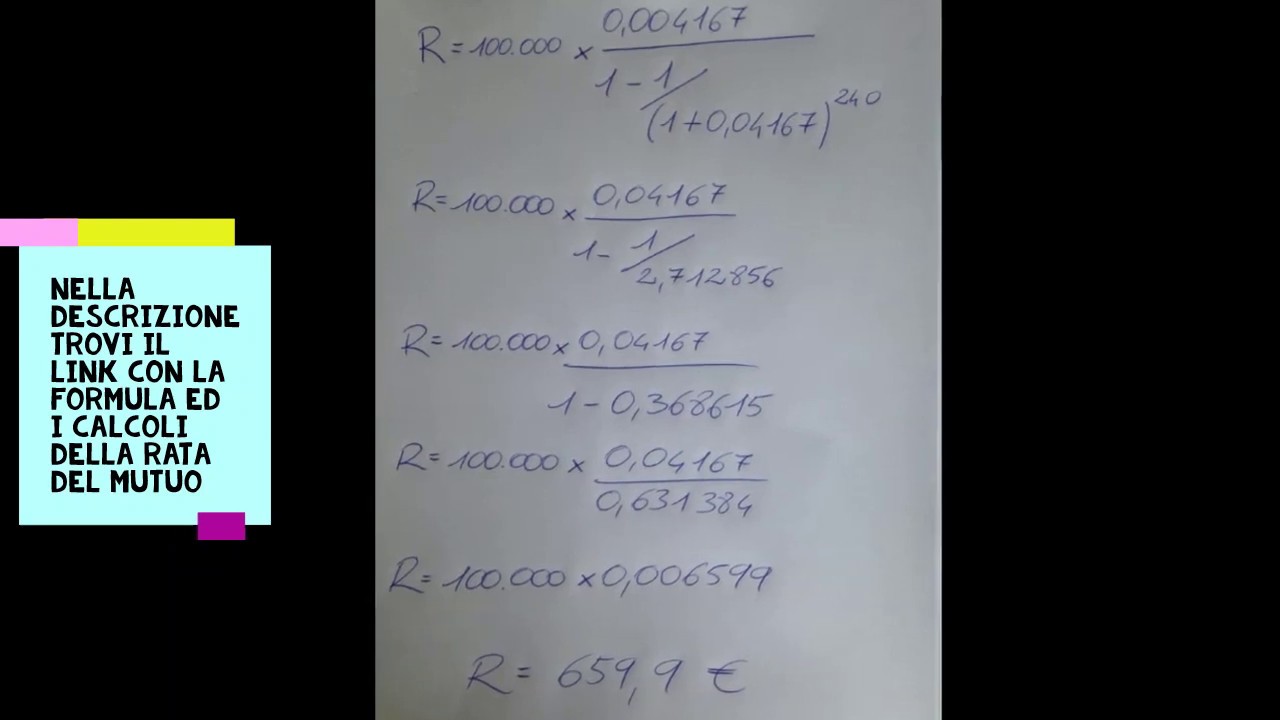 NELLA
DESCRIZIONE
TROVI IL
LINK CON LA
FORMULA ED
I CALCOLI
DELLA RATA
DEL MUTUO
R = 100.000 × 0,004167
1 - 1/
(1+0,04167)^240
R = 100.000 × 0,04167
1 - 1/
2,712856
R = 100.000 × 0,04167
1 - 0,368615
R = 100.000 × 0,04167
0,631384
R = 100.000 × 0,006599
R = 659,9 €